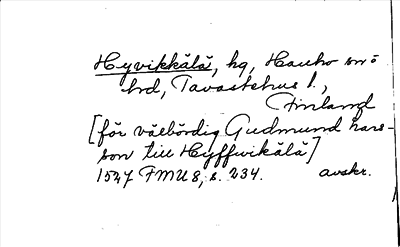 Hyvikkälä, hg, Hauho sn o
hd, Tavastehus l.,
Finland
[för välbördig Gudmund hans-
son till Hyffwikälä]
1547 FMU 8, s. 234. avskr.